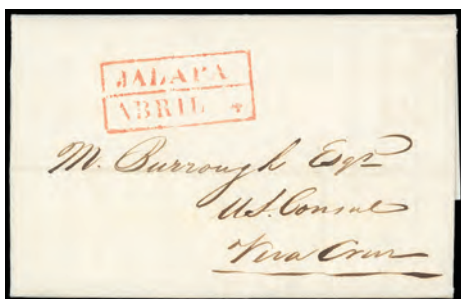 JALAPA
ABRIL 4
M. Burrough Esqr
U.S. Consul
Vera Cruz